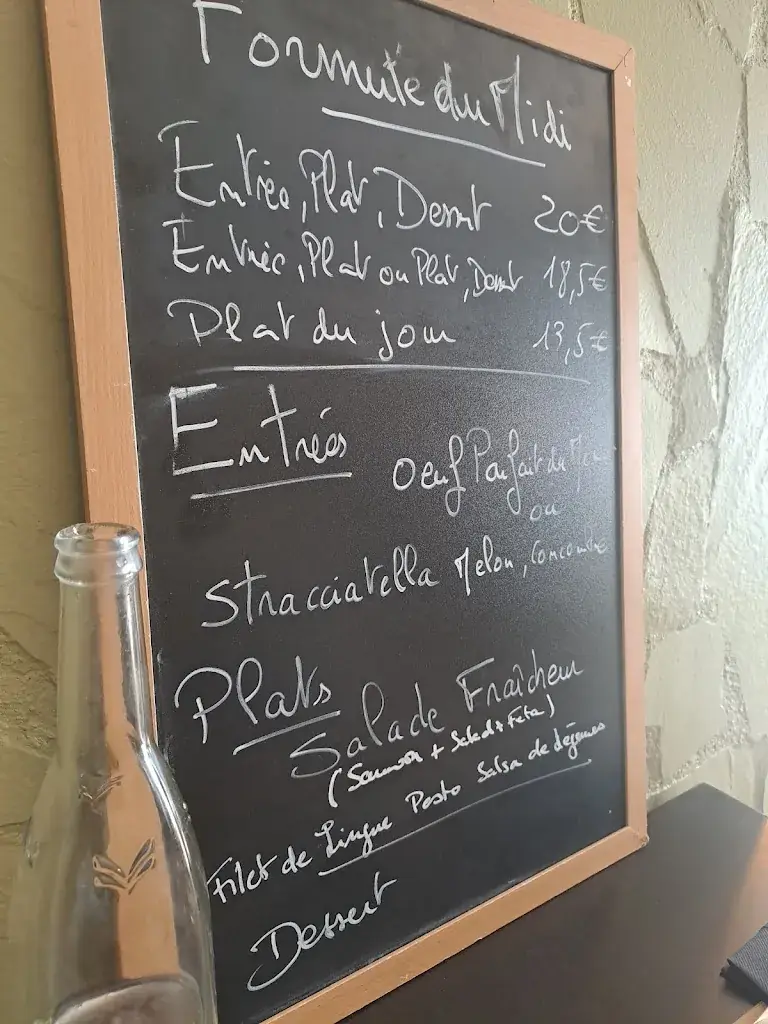 Formule du Midi
Entrée, Plat, Dessert 20€
Entrée, Plat ou Plat, Dessert 18,5€
Plat du jour 13,5€
Entrées
Oeuf Parfait du
ou
Stracciatella Melon, Concombre
Plats
Salade Fraîcheur
(Saumon + Salad + Feta)
Filet de Lingue Pesto Salsa de légumes
Dessert